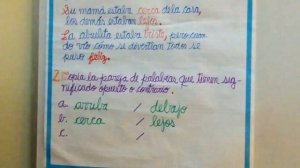 Su mamá estaba cerca dela casa,
los demás estaban lejos.
La abuelita estaba triste, pero cuan
do vio como se divertían todos se
puso feliz.
2. Copia la pareja de palabras, que tienen sig-
nificado opuesto o contrario.
a. arriba / debajo
b. cerca / lejos
c. /